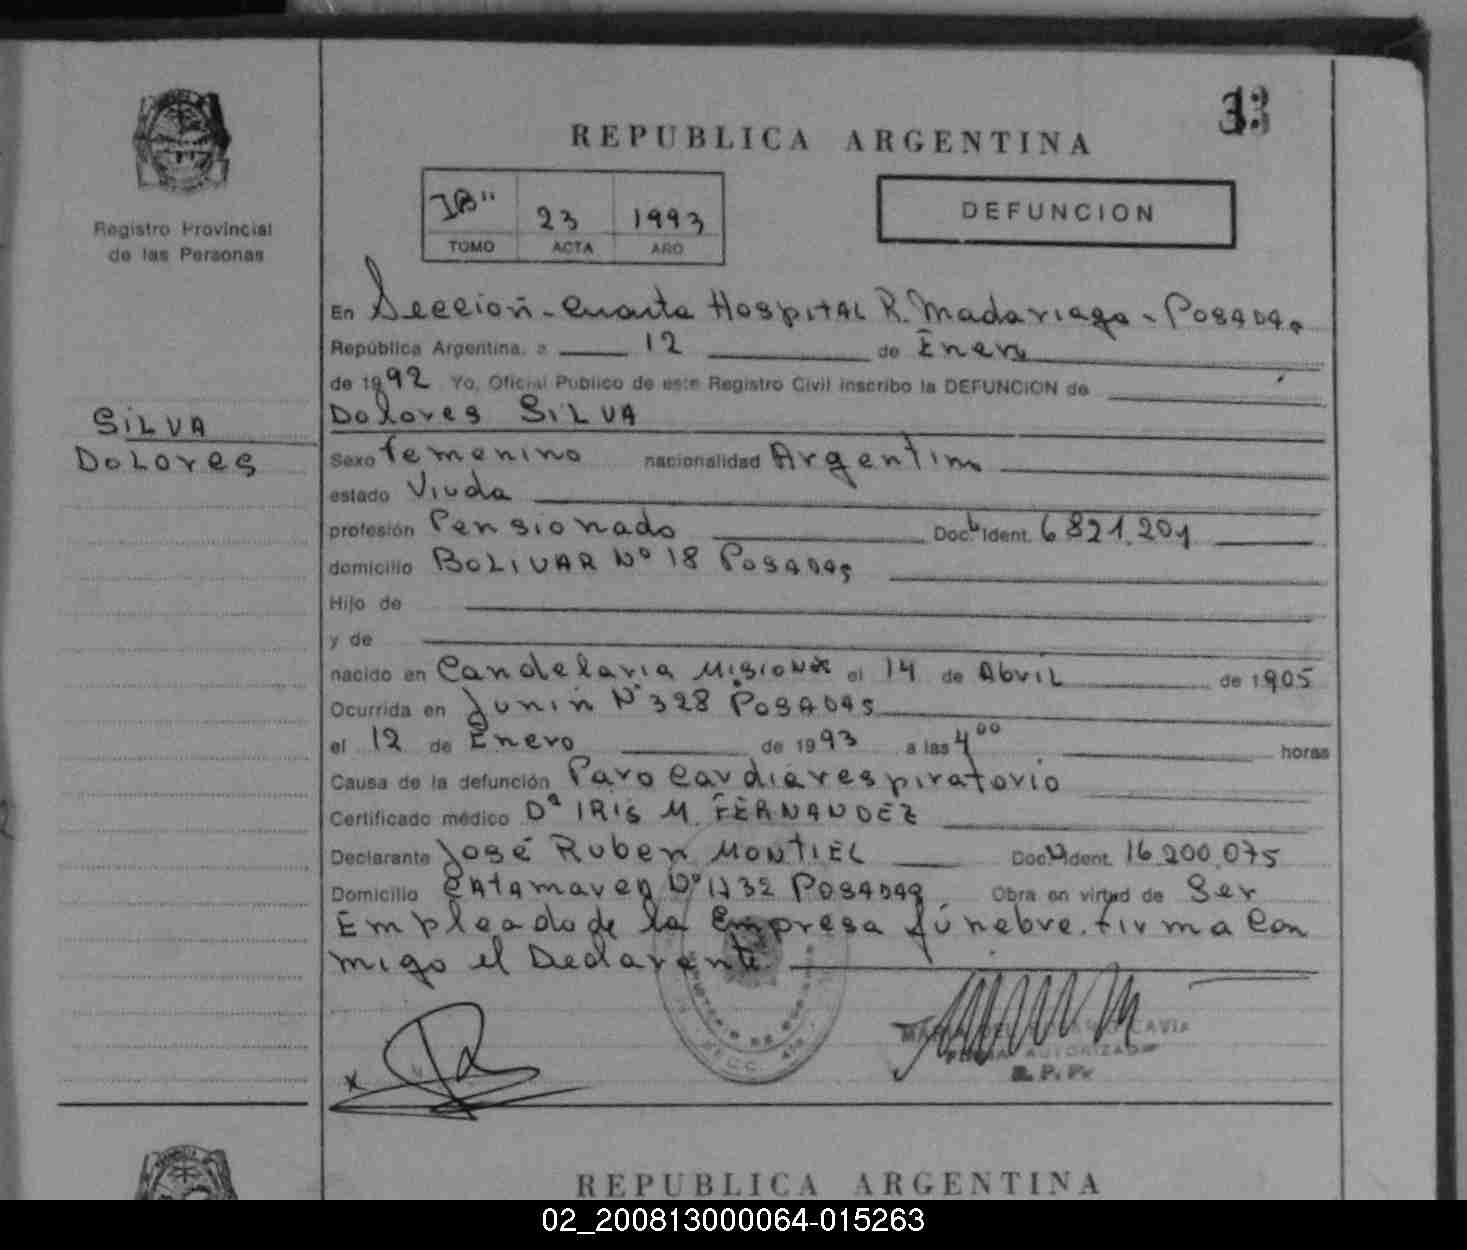 REPUBLICA ARGENTINA
Registro Provincial
de las Personas
23 1993
TOMO ACTA AÑO
DEFUNCION
En Sección Cuarta Hospital R. Madariaga - Posadas
República Argentina, a 12 de Enero
de 1992 Yo, Oficial Publico de este Registro Civil inscribo la DEFUNCION de
Dolores SILVA
SILVA
DoLores
Sexo femenino nacionalidad Argentina
estado Viuda
profesión Pensionado Doc. Ident. 6.821.201
domicilio BOLIVAR Nº 18 Posadas
Hijo de
y de
nacido en Candelaria Misiones el 14 de Abril de 1905
Ocurrida en Junin Nº 328 Posadas
el 12 de Enero de 1993 a las 4⁰⁰ horas
Causa de la defunción Paro Cardiarespiratorio
Certificado médico Dª IRIS M. FERNANDEZ
Declarante José Ruben MONTIEL Doc. Ident. 16.200.075
Domicilio Catamarca Nº 1732 Posadas Obra en virtud de Ser
Empleado de la Empresa fúnebre. firma Con
migo el Declarante
FIRMA AUTORIZADA
REPUBLICA ARGENTINA
02_200813000064-015263